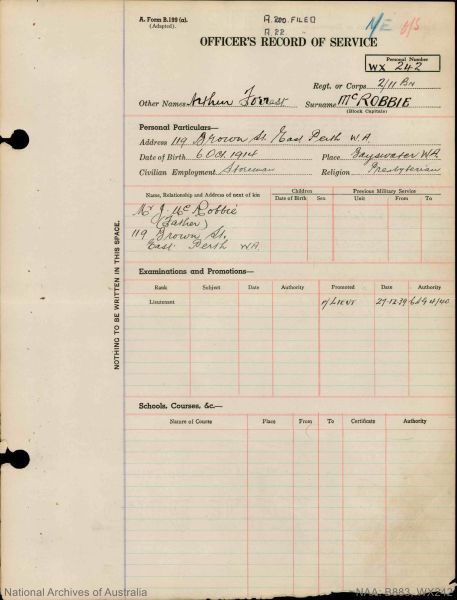 A. Form B.199 (a).
(Adapted).
A. 200. FILED
A 22
M/E O/S
OFFICER'S RECORD OF SERVICE
Personal Number
WX 242
Regt. or Corps 2/11 Bn
Other Names Arthur Forrest Surname McROBBIE
(Block Capitals)
Personal Particulars—
Address 119 Brown St. East Perth W.A.
Date of Birth 6 Oct 1914 Place Bayswater W.A.
Civilian Employment Storeman Religion Presbyterian
Name, Relationship and Address of next of kin Children Previous Military Service
Date of Birth Sex Unit From To
Mr J. McRobbie
(Father)
119 Brown St.
East Perth W.A.
NOTHING TO BE WRITTEN IN THIS SPACE.
Examinations and Promotions—
Rank Subject Date Authority Promoted Date Authority
Lieutenant LIEUT 27.12.39 4/40
Schools, Courses, &c.—
Nature of Course Place From To Certificate Authority
National Archives of Australia NAA: B883, WX242